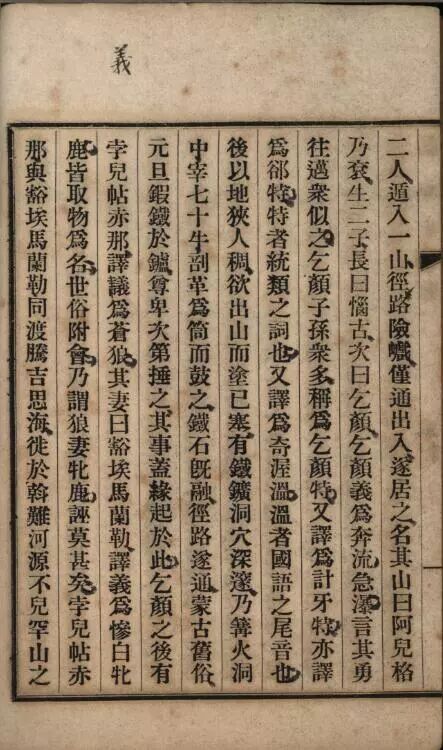 義
二人遁入一山徑路險巇僅通出入遂居之名其山曰阿兒格
乃袞生二子長曰惱古次曰乞顏乞顏義爲奔流急瀑言其勇
往邁衆似之乞顏子孫衆多稱爲乞顏特又譯爲計牙特亦譯
爲郤特特者統類之詞也又譯爲奇渥溫溫者國語之尾音也
後以地狹人稠欲出山而塗已塞有鐵鑛洞穴深邃乃篝火洞
中宰七十牛剖革爲筒而鼓之鐵石旣融徑路遂通蒙古舊俗
元旦鍜鐵於鑪尊卑次第捶之其事蓋緣起於此乞顏之後有
孛兒帖赤那譯議爲蒼狼其妻曰豁埃馬蘭勒譯義爲慘白牝
鹿皆取物爲名世俗附會乃謂狼妻牝鹿誣莫甚矣孛兒帖赤
那與豁埃馬蘭勒同渡騰吉思海徙於斡難河源不兒罕山之